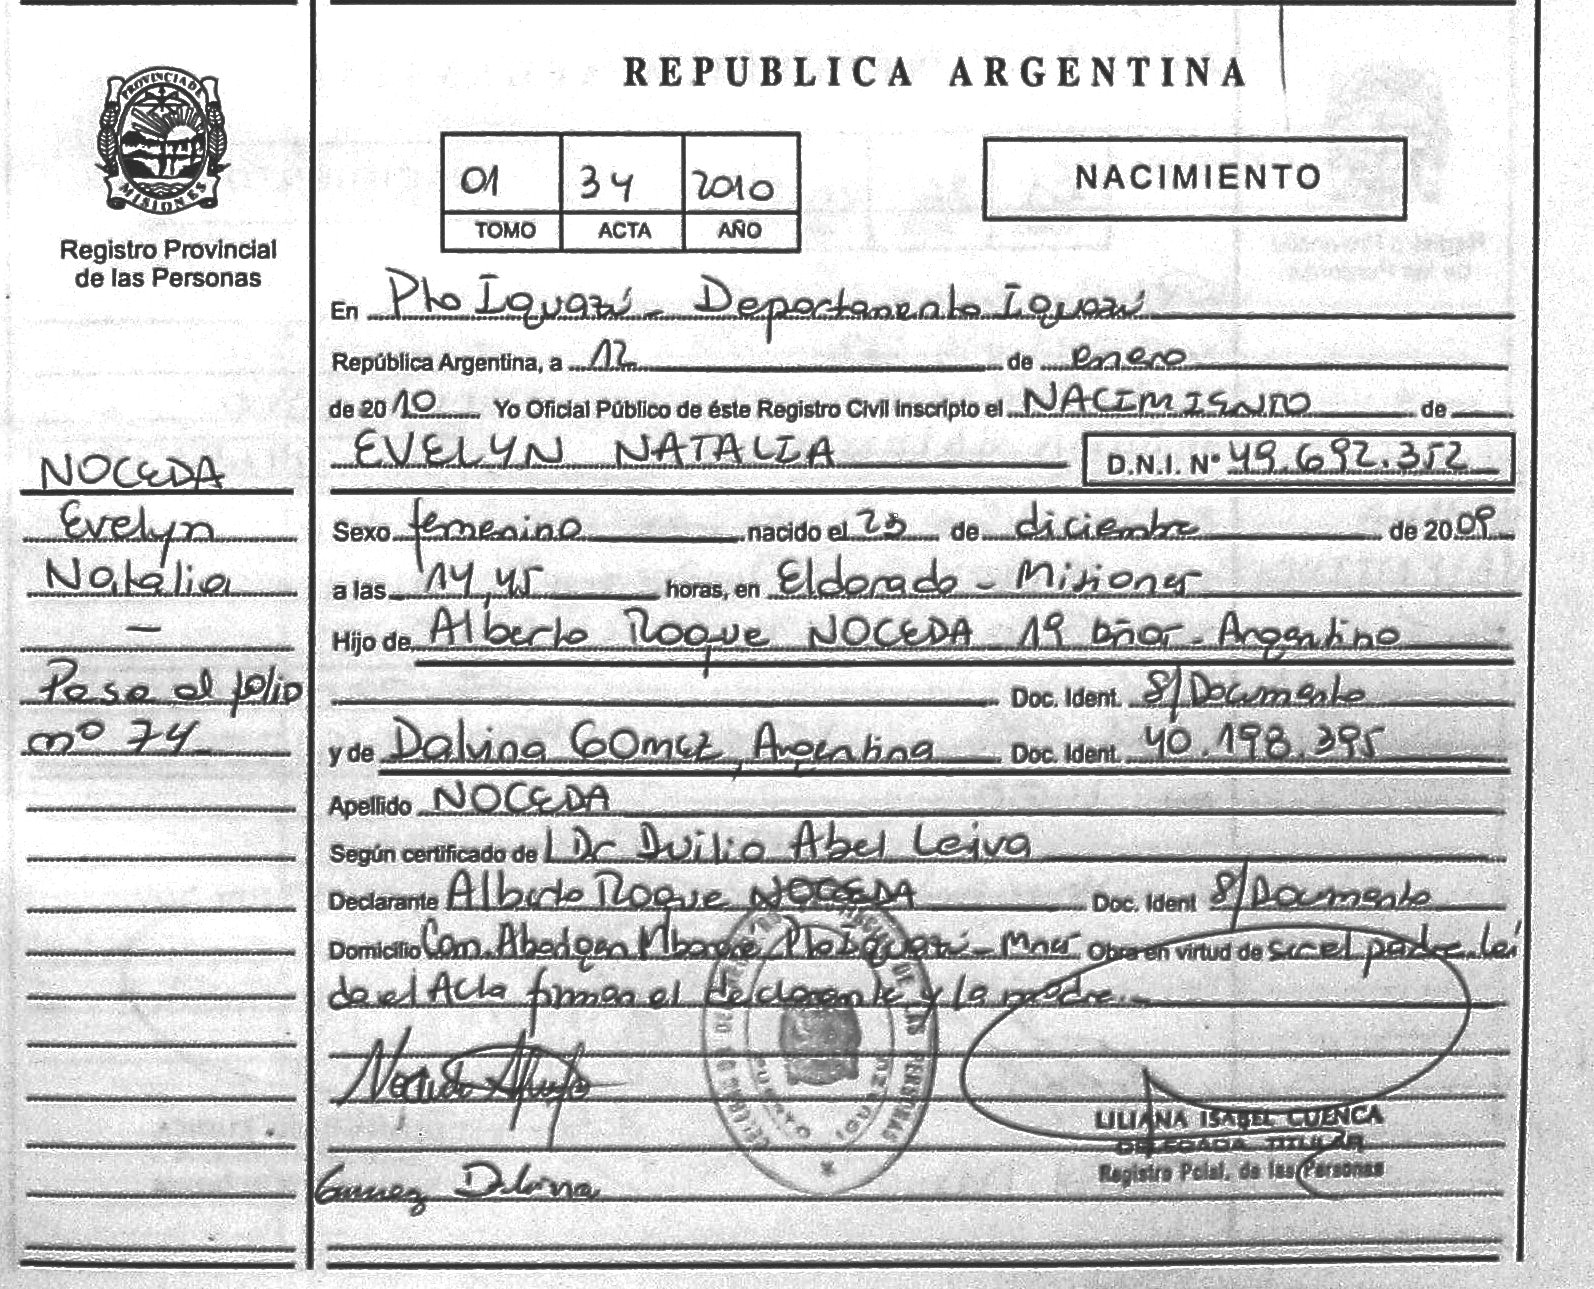 REPUBLICA ARGENTINA
PROVINCIA DE MISIONES
Registro Provincial
de las Personas
01 34 2010
TOMO ACTA AÑO
NACIMIENTO
En Pto Iguazú - Departamento Iguazú
República Argentina, a 12 de enero
de 2010 Yo Oficial Público de éste Registro Civil Inscripto el NACIMIENTO de
EVELYN NATALIA D.N.I. Nº 49.692.352
NOCEDA
Evelyn
Natalia
—
Pasa al folio
nº 74
Sexo femenino nacido el 23 de diciembre de 2009
a las 14,45 horas, en Eldorado - Misiones
Hijo de Alberto Roque NOCEDA 19 años - Argentino
Doc. Ident. S/Documento
y de Dalvina GOMEZ, Argentina Doc. Ident. 40.198.395
Apellido NOCEDA
Según certificado de l Dr Duilio Abel Leiva
Declarante Alberto Roque NOCEDA Doc. Ident S/Documento
Domicilio Com. Aborigen Mbororé, Pto Iguazú - Mnes Obra en virtud de ser el padre. Leí
da el Acta firman el declarante y la madre.-
Gomez Dalvina
LILIANA ISABEL CUENCA
DELEGADA TITULAR
Registro Pcial. de las Personas